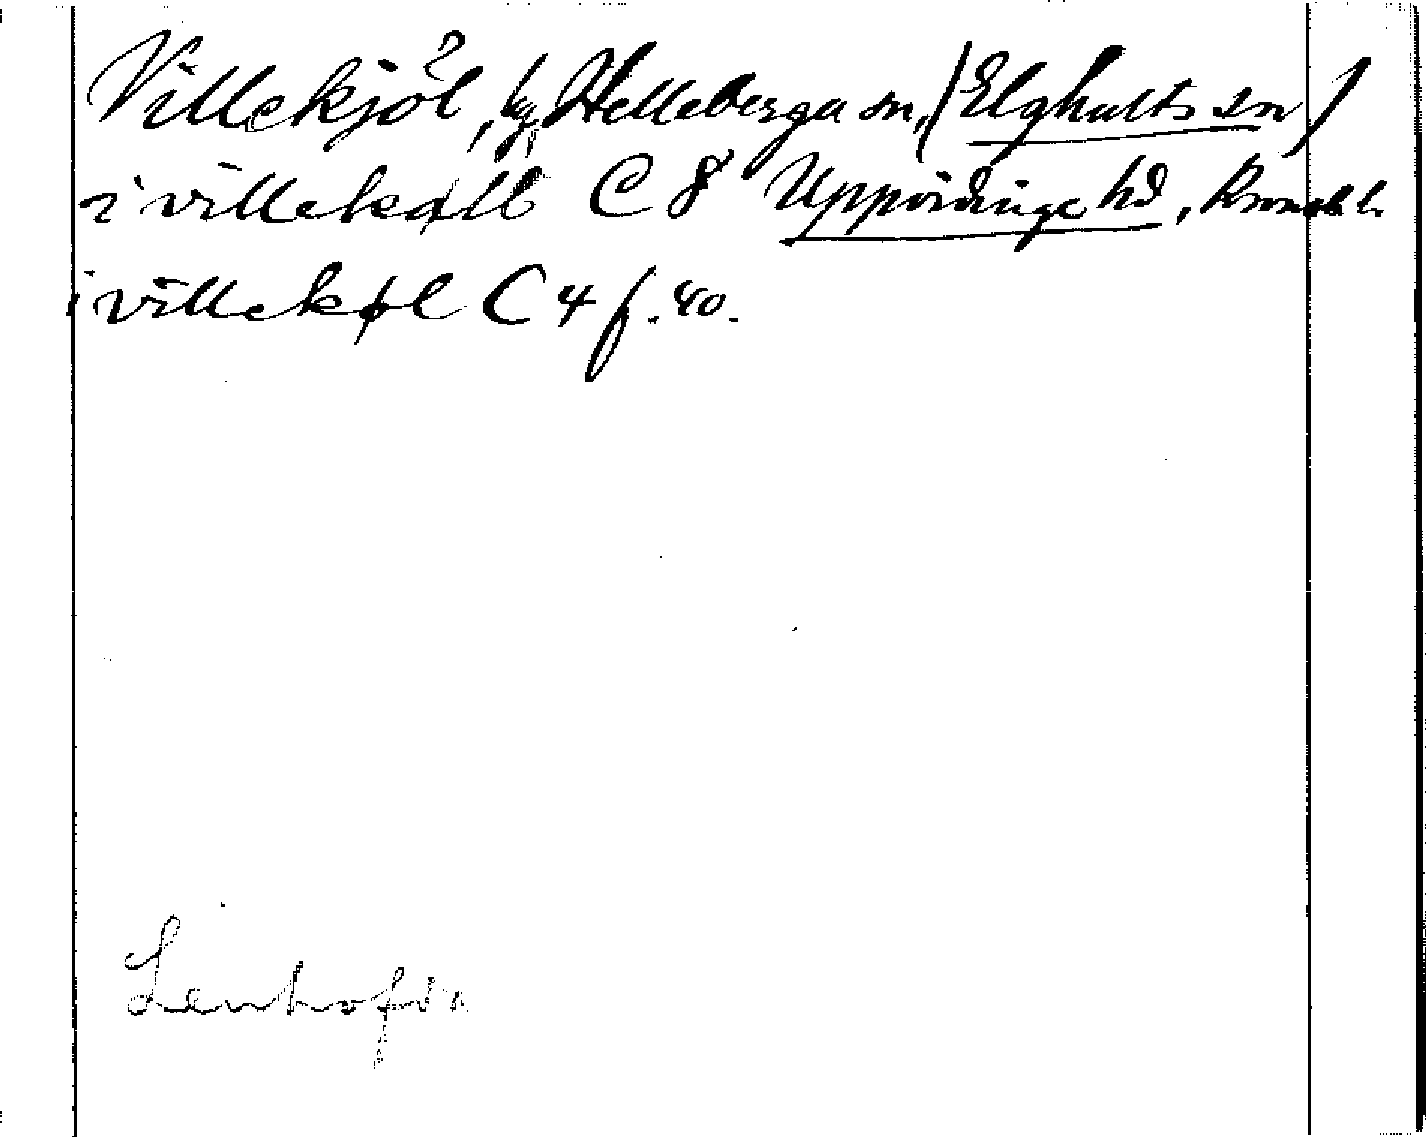 Villekjöl, by, Helleberga sn, (Elghults sn)
i villekøll C 8 Uppvidinge hd, Kronob. l.
i villekøl C 4 f. 40.
Lenhofda